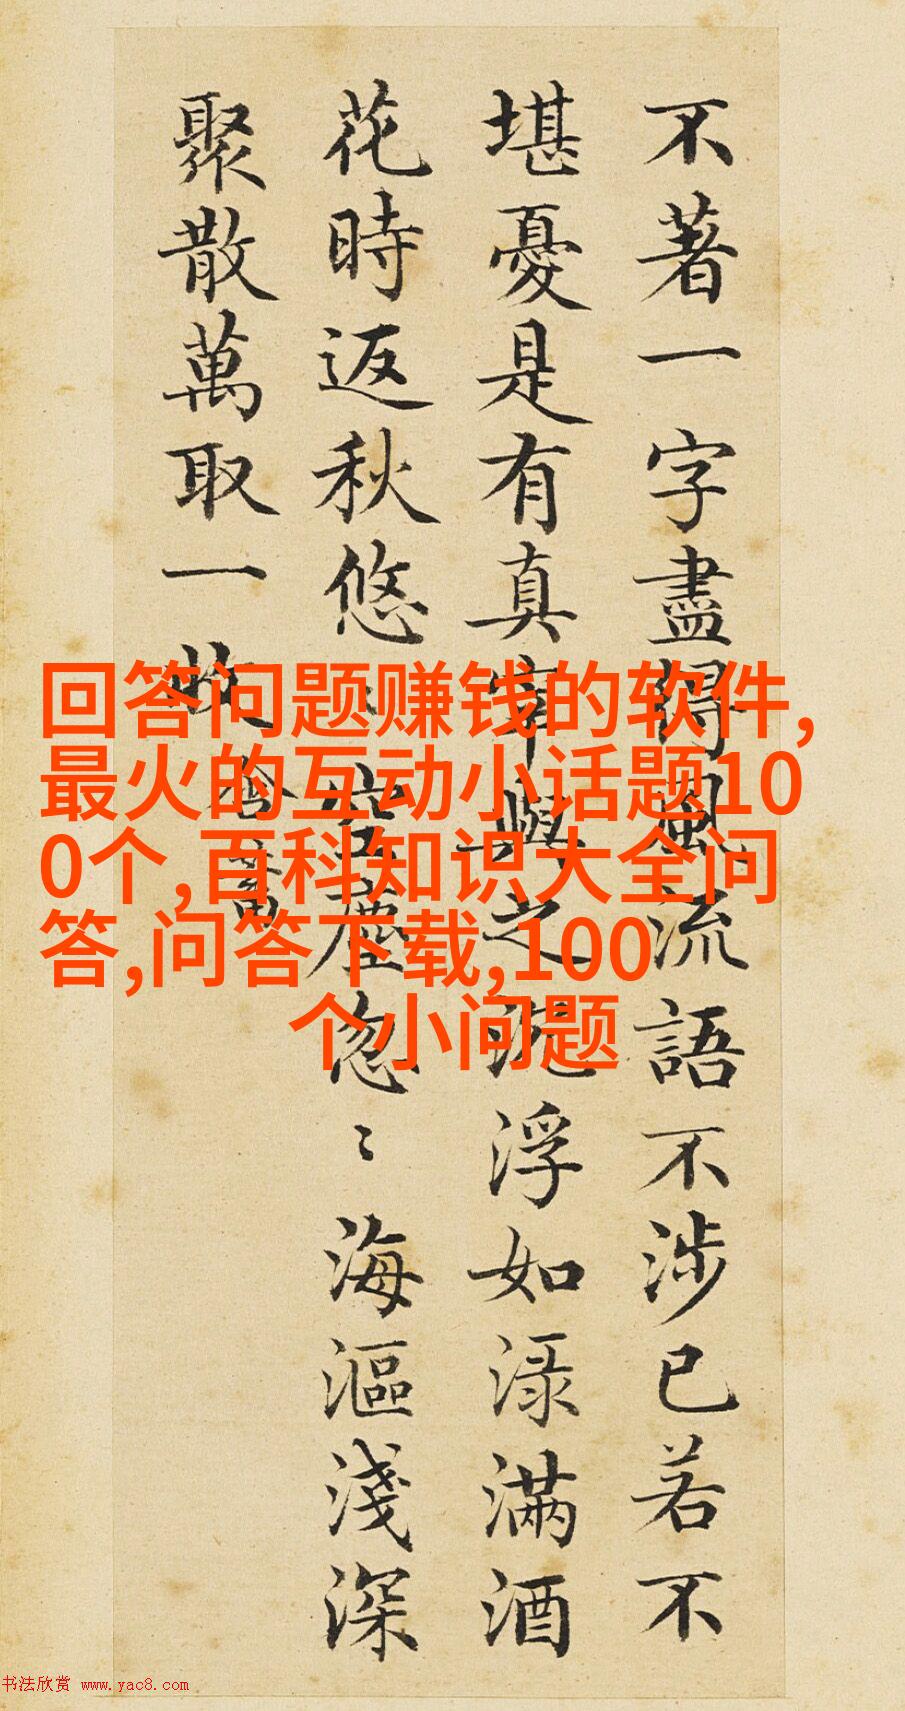 不著一字盡得風流語不涉已若不
堪憂是有真宰與之沉浮如淥滿酒
花時返秋悠〻空塵忽〻海漚淺深
聚散萬取一收
含蓄
回答问题赚钱的软件,
最火的互动小话题10
0个,百科知识大全问
答,问答下载,100
个小问题
书法欣赏 www.yac8.com